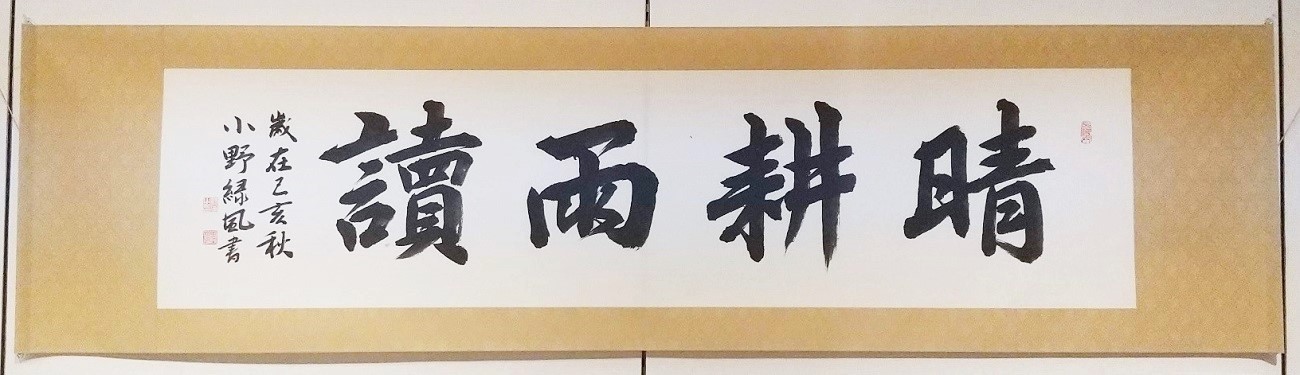 晴耕雨讀
歳在己亥秋
小野緑風書